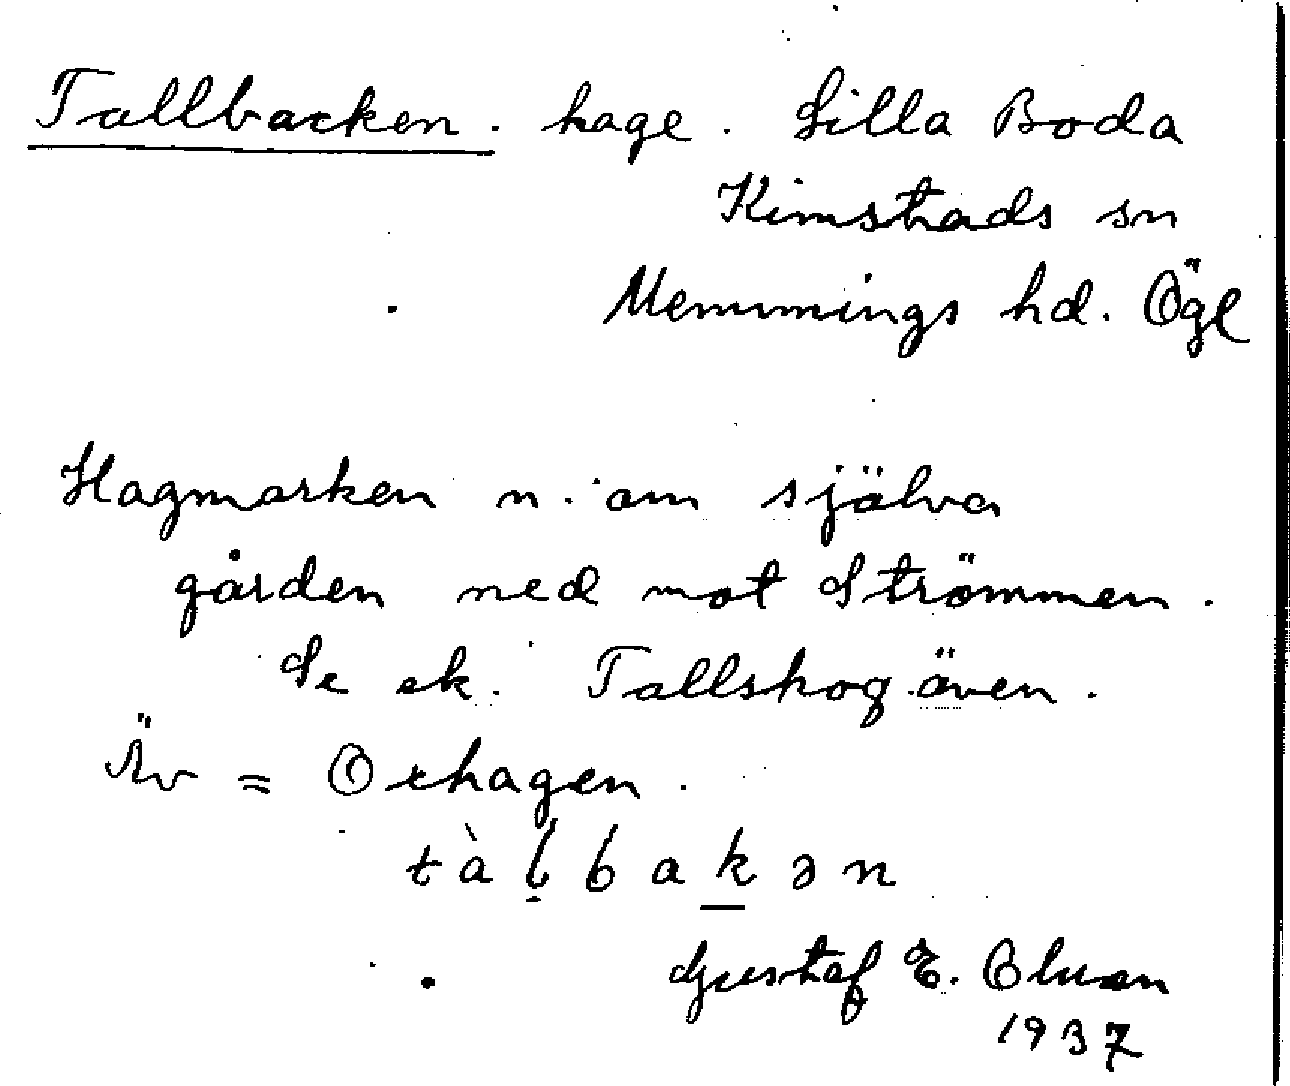 Tallbacken. hage. Lilla Boda
Kimstads sn
Memmings hd. Ögl
Hagmarken n. om själva
gården ned mot Strömmen.
Se ek. Tallskog även.
Äv = Oxhagen.
tàḷbakən
Gustaf E. Cluson
1937